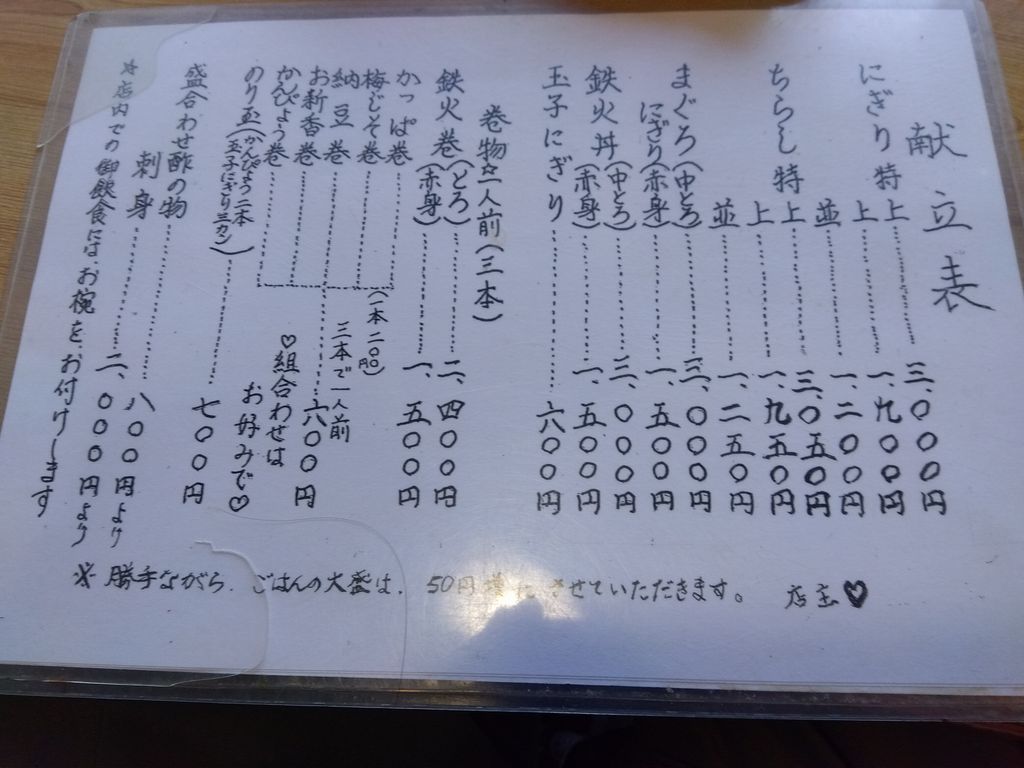 献立表
にぎり特上 三、〇〇〇円
上 一、九〇〇円
並 一、二〇〇円
ちらし特上 三、〇五〇円
上 一、九五〇円
並 一、二五〇円
まぐろ(中とろ) 三、〇〇〇円
にぎり(赤身) 一、五〇〇円
鉄火丼(中とろ) 三、〇〇〇円
(赤身) 一、五〇〇円
玉子にぎり 六〇〇円
巻物☆一人前(三本)
鉄火巻(とろ) 二、四〇〇円
(赤身) 一、五〇〇円
かっぱ巻
梅じそ巻
納豆巻
お新香巻
かんぴょう巻
(一本二〇〇円)
三本で一人前 六〇〇円
♡組合わせは
お好みで♡
のり玉(かんぴょう二本
玉子にぎり三カン) 七〇〇円
盛合わせ酢の物 八〇〇円より
刺身 二、〇〇〇円より
☆店内での御飲食にはお椀をお付けします
※勝手ながら、ごはんの大盛は、50円増にさせていただきます。 店主♥